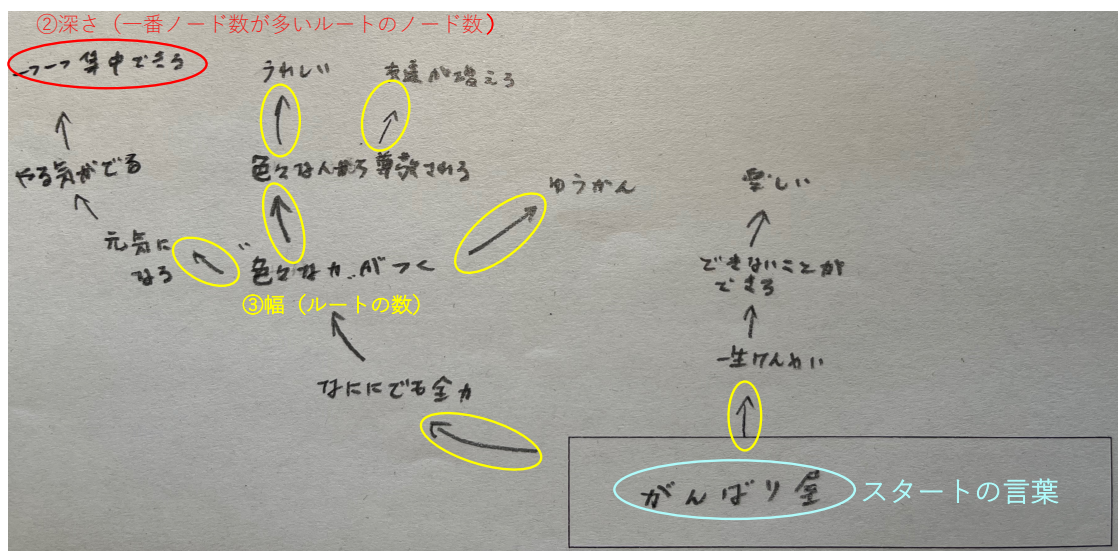 ②深さ（一番ノード数が多いルートのノード数）
一つ一つ集中できる
うれしい
友達が増える
やる気がでる
色々な人から尊敬される
ゆうかん
楽しい
元気に
なる
色々な力がつく
できないことが
できる
③幅（ルートの数）
一生けんめい
なににでも全力
がんばり屋
スタートの言葉